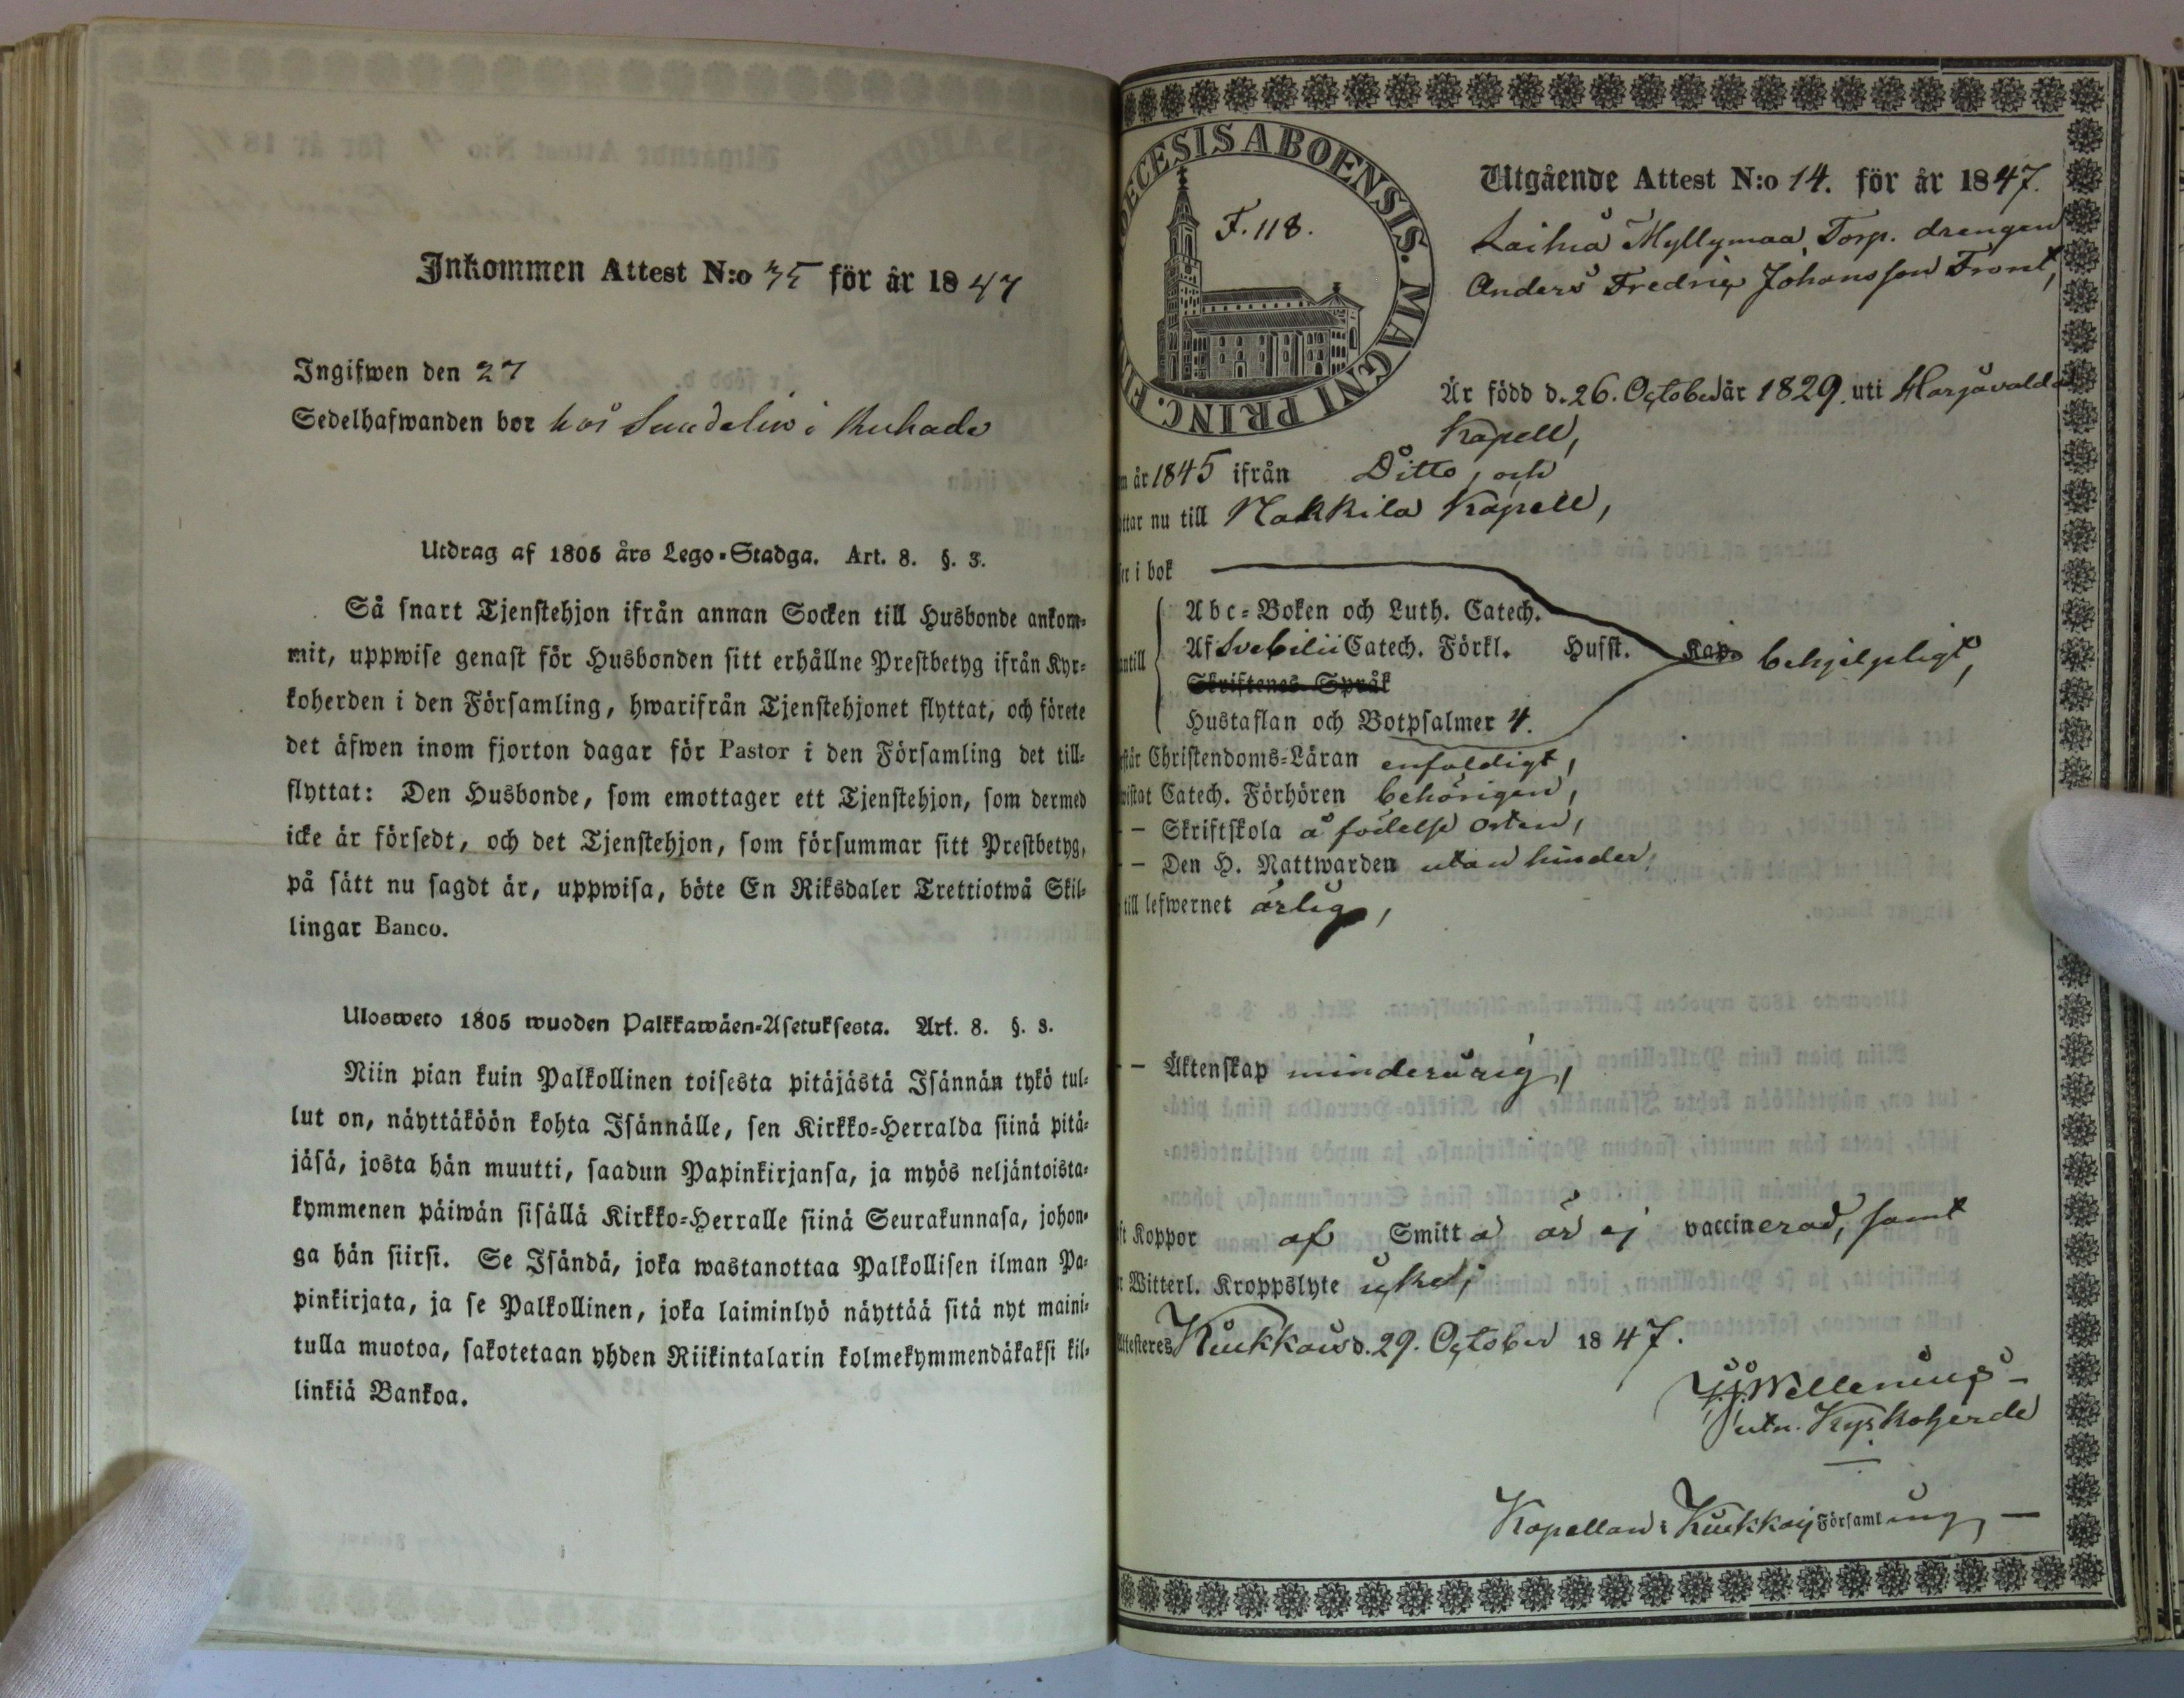 Inkommen Attest N:o 35 för år 1847
Ingifwen den 27
Sedelhafwanden bor hos Sundelin i
Utdrag af 1805 års Lego-Stadga. Art. 8. §. 3.
Så snart Tjenstehjon ifrån annan Socken till Husbonde ankom-
mit, uppwise genast för Husbonden sitt erhållne Prestbetyg ifrån Kyr-
koherden i den Församling, hwarifrån Tjenstehjonet flyttat, och förete
det äfwen inom fjorton dagar för Pastor i den Församling det till-
flyttat: Den Husbonde, som emottager ett Tjenstehjon, som dermed
icke är försedt, och det Tjenstehjon, som försummar sitt Prestbetyg,
på sätt nu sagdt är, uppwisa, böte En Riksdaler Trettiotwå Skil-
lingar Banco.
Ulosweto 1805 wuoden Palkkawäen-Asetuksesta. Art. 8. §. 3.
Niin pian kuin Palkollinen toisesta pitäjästä Isännän tykö tul-
lut on, näyttäköön kohta Isännälle, sen Kirkko-Herralda siinä pitä-
jäsä, josta hän muutti, saadun Papinkirjansa, ja myös neljäntoista-
kymmenen päiwän sisällä Kirkko-Herralle siinä Seurakunnasa, johon-
ga hän siirsi. Se Isändä, joka wastanottaa Palkollisen ilman Pa-
pinkirjata, ja se Palkollinen, joka laiminlyö näyttää sitä nyt maini-
tulla muotoa, sakotetaan yhden Riikintalarin kolmekymmendäkaksi kil-
linkiä Bankoa.
DIOECESIS ABOENSIS. MAGNI PRINC. FIN
F. 118.
Utgående Attest N:o 14. för år 1847.
Laihia Myllymaa Torp. drengen
Anders Fredric Johansson Front,
Är född d. 26. October år 1829. uti Harjavalda
Kapell,
n år 1845 ifrån Ditto, och
ttar nu till Nakkila Kapell,
ser i bok
Abc-Boken och Luth. Catech.
antill Af Svebilii Catech. Förkl. Hufst. Kap. behjelpeligt,
Skriftenes Språk
Hustaflan och Botpsalmer 4.
står Christendoms-Läran enfaldigt,
wistat Catech. Förhören behörigen,
– – Skriftskola å födelse orten,
– – Den H. Nattwarden utan hinder,
till lefwernet ärlig,
– – Äktenskap minderårig,
ft Koppor af Smitta är ej vaccinerad, samt
r Witterl. Kroppslyte
Attesteres Kiukkais d. 29. October 1847.
J. J. Wellenius
utn. Kyrkoherde
Kapellan i Kiukkais Församling, —